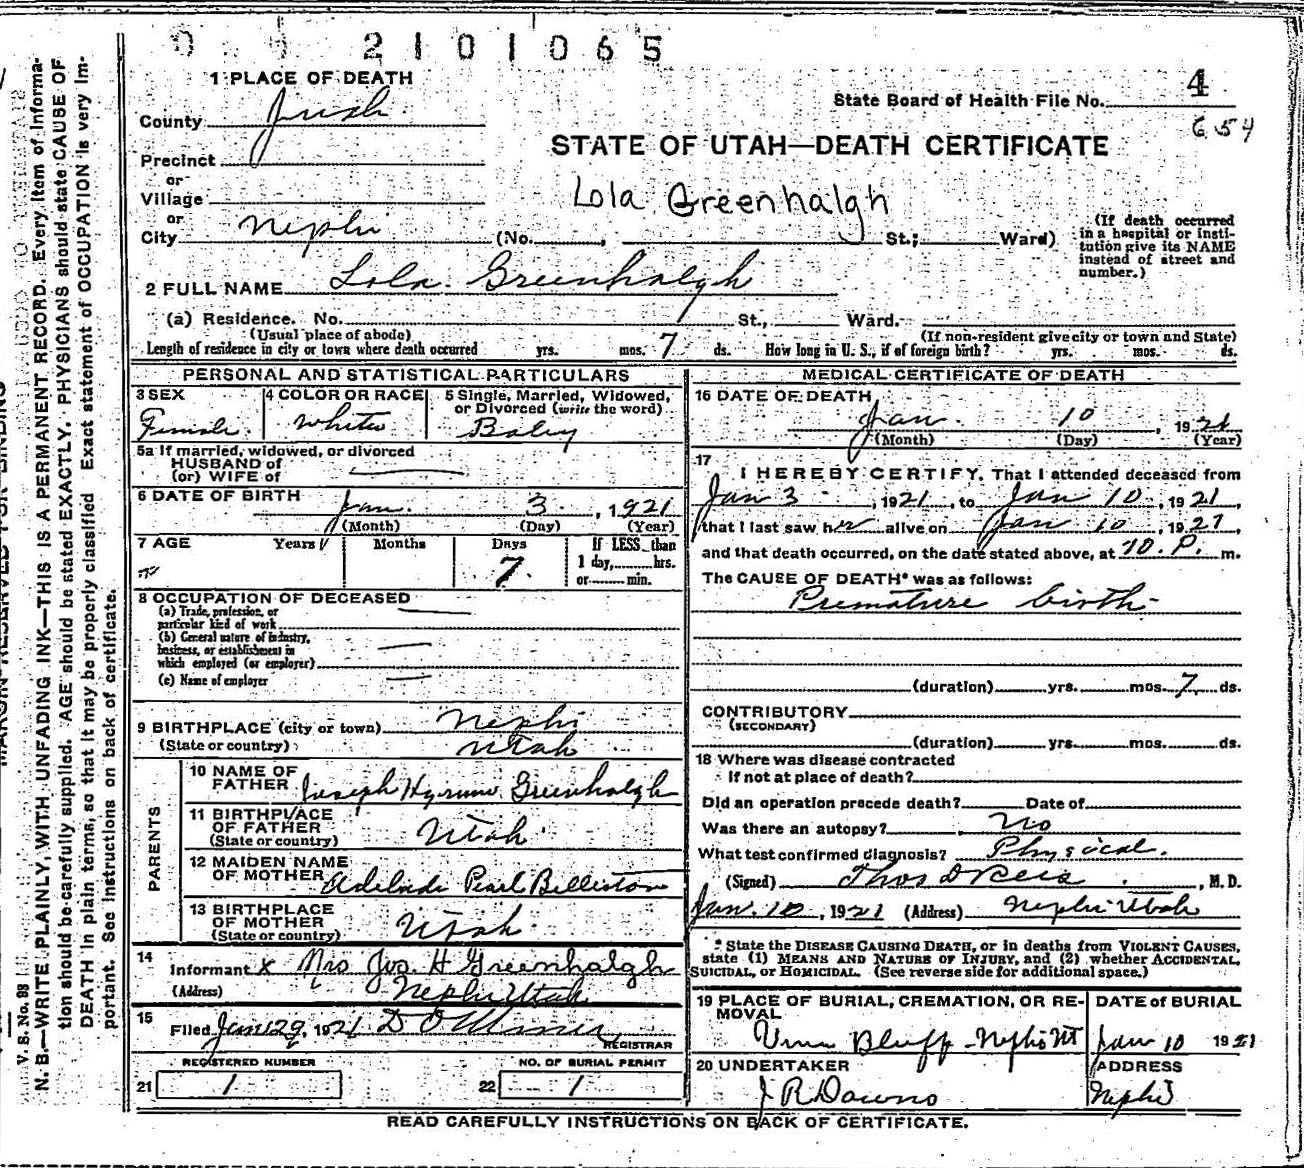 2101065
1 PLACE OF DEATH
County Juab
Precinct
or
Village
or
City Nephi (No. , St.; Ward)
State Board of Health File No. 4
654
STATE OF UTAH—DEATH CERTIFICATE
Lola Greenhalgh
(If death occurred
in a hospital or insti-
tution give its NAME
instead of street and
number.)
2 FULL NAME Lola Greenhalgh
(a) Residence. No. St., Ward.
(Usual place of abode) (If non-resident give city or town and State)
Length of residence in city or town where death occurred yrs. mos. 7 ds. How long in U. S., if of foreign birth? yrs. mos. ds.
PERSONAL AND STATISTICAL PARTICULARS
3 SEX 4 COLOR OR RACE 5 Single, Married, Widowed,
or Divorced (write the word)
Female. White Baby
5a If married, widowed, or divorced
HUSBAND of
(or) WIFE of
6 DATE OF BIRTH
Jan. 3 , 1921
(Month) (Day) (Year)
7 AGE Years Months Days If LESS than
1 day, hrs.
or min.
7
8 OCCUPATION OF DECEASED
(a) Trade, profession, or
particular kind of work
(b) General nature of industry,
business, or establishment in
which employed (or employer)
(c) Name of employer
9 BIRTHPLACE (city or town) Nephi
(State or country) Utah
PARENTS
10 NAME OF
FATHER Joseph Hyrum Greenhalgh
11 BIRTHPLACE
OF FATHER
(State or country) Utah
12 MAIDEN NAME
OF MOTHER Adelaide Pearl Belliston
13 BIRTHPLACE
OF MOTHER
(State or country) Utah
14
Informant x Mrs Jos. H Greenhalgh
(Address) Nephi Utah
15
Filed Jan 29, 1921 D O
REGISTRAR
REGISTERED NUMBER NO. OF BURIAL PERMIT
21 1 22 1
MEDICAL CERTIFICATE OF DEATH
16 DATE OF DEATH
Jan. 10 , 1921
(Month) (Day) (Year)
17
I HEREBY CERTIFY, That I attended deceased from
Jan 3 , 1921, to Jan 10 , 1921,
that I last saw her alive on Jan 10 , 1921,
and that death occurred, on the date stated above, at 10. P. m.
The CAUSE OF DEATH* was as follows:
Premature birth
(duration) yrs. mos. 7 ds.
CONTRIBUTORY
(SECONDARY)
(duration) yrs. mos. ds.
18 Where was disease contracted
If not at place of death?
Did an operation precede death? Date of
Was there an autopsy? No
What test confirmed diagnosis? Physical.
(Signed) Thos D Rees , M.D.
Jan. 10 , 1921 (Address) Nephi Utah
* State the DISEASE CAUSING DEATH, or in deaths from VIOLENT CAUSES,
state (1) MEANS AND NATURE OF INJURY, and (2) whether ACCIDENTAL,
SUICIDAL, or HOMICIDAL. (See reverse side for additional space.)
19 PLACE OF BURIAL, CREMATION, OR RE-
MOVAL DATE of BURIAL
Bluff - Nephi Ut Jan 10 1921
20 UNDERTAKER ADDRESS
J R Downs Nephi
READ CAREFULLY INSTRUCTIONS ON BACK OF CERTIFICATE.
V. S. No. 98
N. B.—WRITE PLAINLY, WITH UNFADING INK—THIS IS A PERMANENT RECORD. Every item of informa-
tion should be carefully supplied. AGE should be stated EXACTLY. PHYSICIANS should state CAUSE OF
DEATH in plain terms, so that it may be properly classified. Exact statement of OCCUPATION is very im-
portant. See instructions on back of certificate.
MARGIN RESERVED FOR BINDING